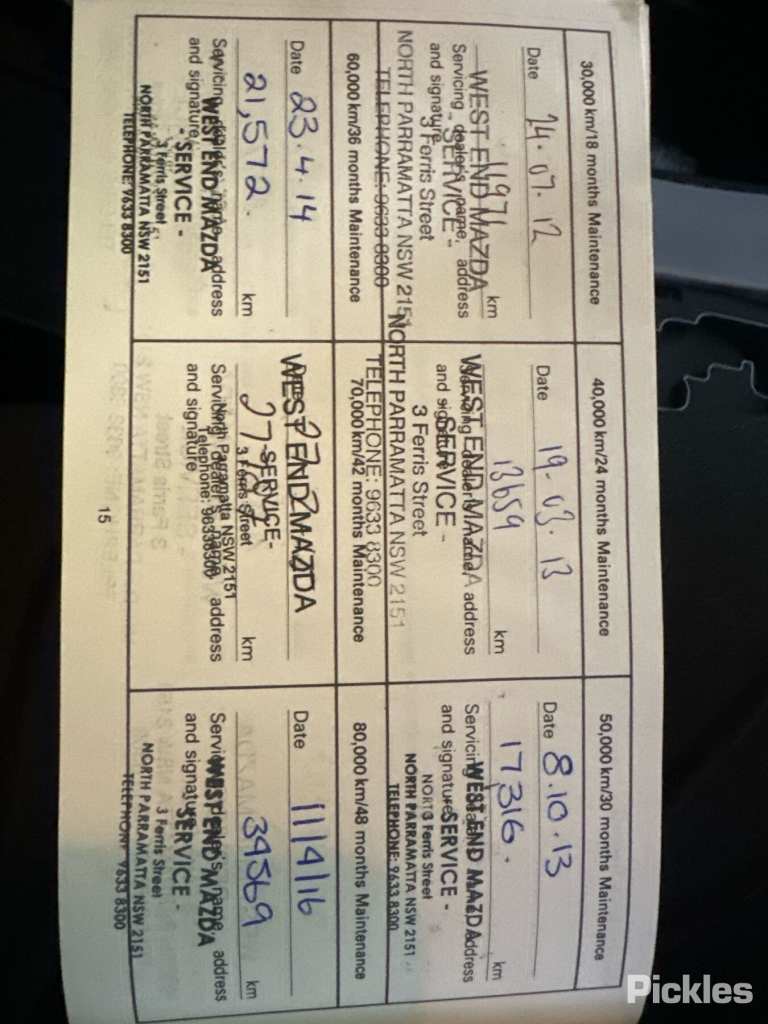 30,000 km/18 months Maintenance
Date 24.07.12
11971 km
Servicing dealer's name, address
and signature
WEST END MAZDA
- SERVICE -
3 Ferris Street
NORTH PARRAMATTA NSW 2151
TELEPHONE: 9633 8300
40,000 km/24 months Maintenance
Date 19.03.13
13659 km
Servicing dealer's name, address
and signature
WEST END MAZDA
- SERVICE -
3 Ferris Street
NORTH PARRAMATTA NSW 2151
TELEPHONE: 9633 8300
50,000 km/30 months Maintenance
Date 8.10.13
17,316. km
Servicing dealer's name, address
and signature
WEST END MAZDA
- SERVICE -
3 Ferris Street
NORTH PARRAMATTA NSW 2151
TELEPHONE: 9633 8300
60,000 km/36 months Maintenance
Date 23.4.14
21,572. km
Servicing dealer's name, address
and signature
WEST END MAZDA
- SERVICE -
3 Ferris Street
NORTH PARRAMATTA NSW 2151
TELEPHONE: 9633 8300
70,000 km/42 months Maintenance
Date
km
Servicing dealer's name, address
and signature
WEST END MAZDA
-SERVICE-
3 Ferris Street
North Parramatta NSW 2151
Telephone: 96338300
80,000 km/48 months Maintenance
Date 11/4/16
34569 km
Servicing dealer's name, address
and signature
WEST END MAZDA
- SERVICE -
3 Ferris Street
NORTH PARRAMATTA NSW 2151
TELEPHONE: 9633 8300
15
Pickles